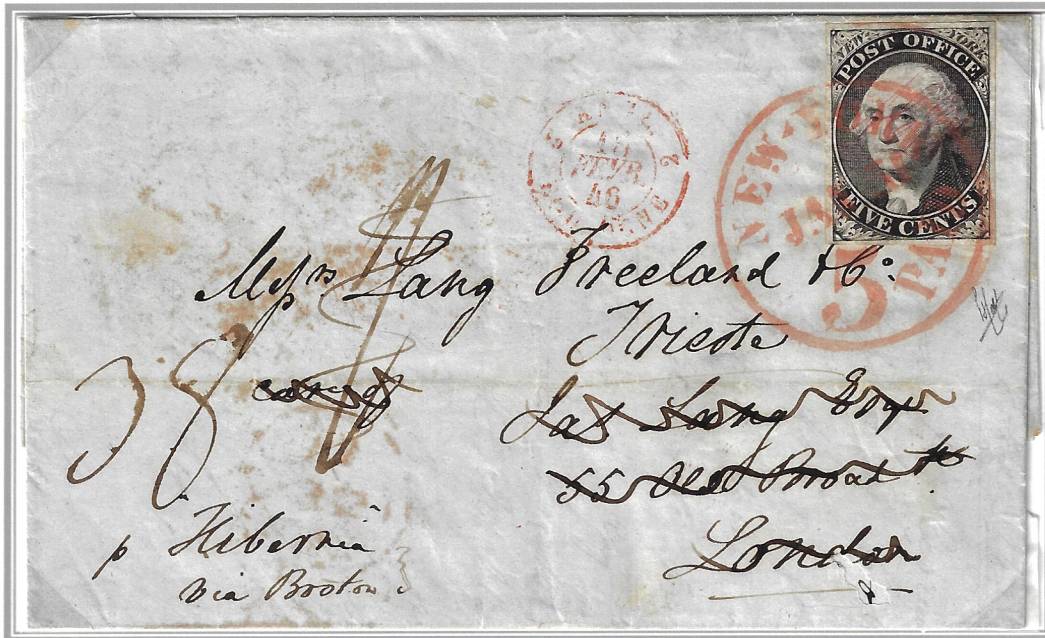 NEW YORK
POST OFFICE
FIVE CENTS
NEW-
JA
5
PA
10
FEVR
46
Messrs Lang Freeland & Co:
Trieste
care of
Jas Lang Esqr
55 Old Broad St.
London
38
p Hibernia
via Boston